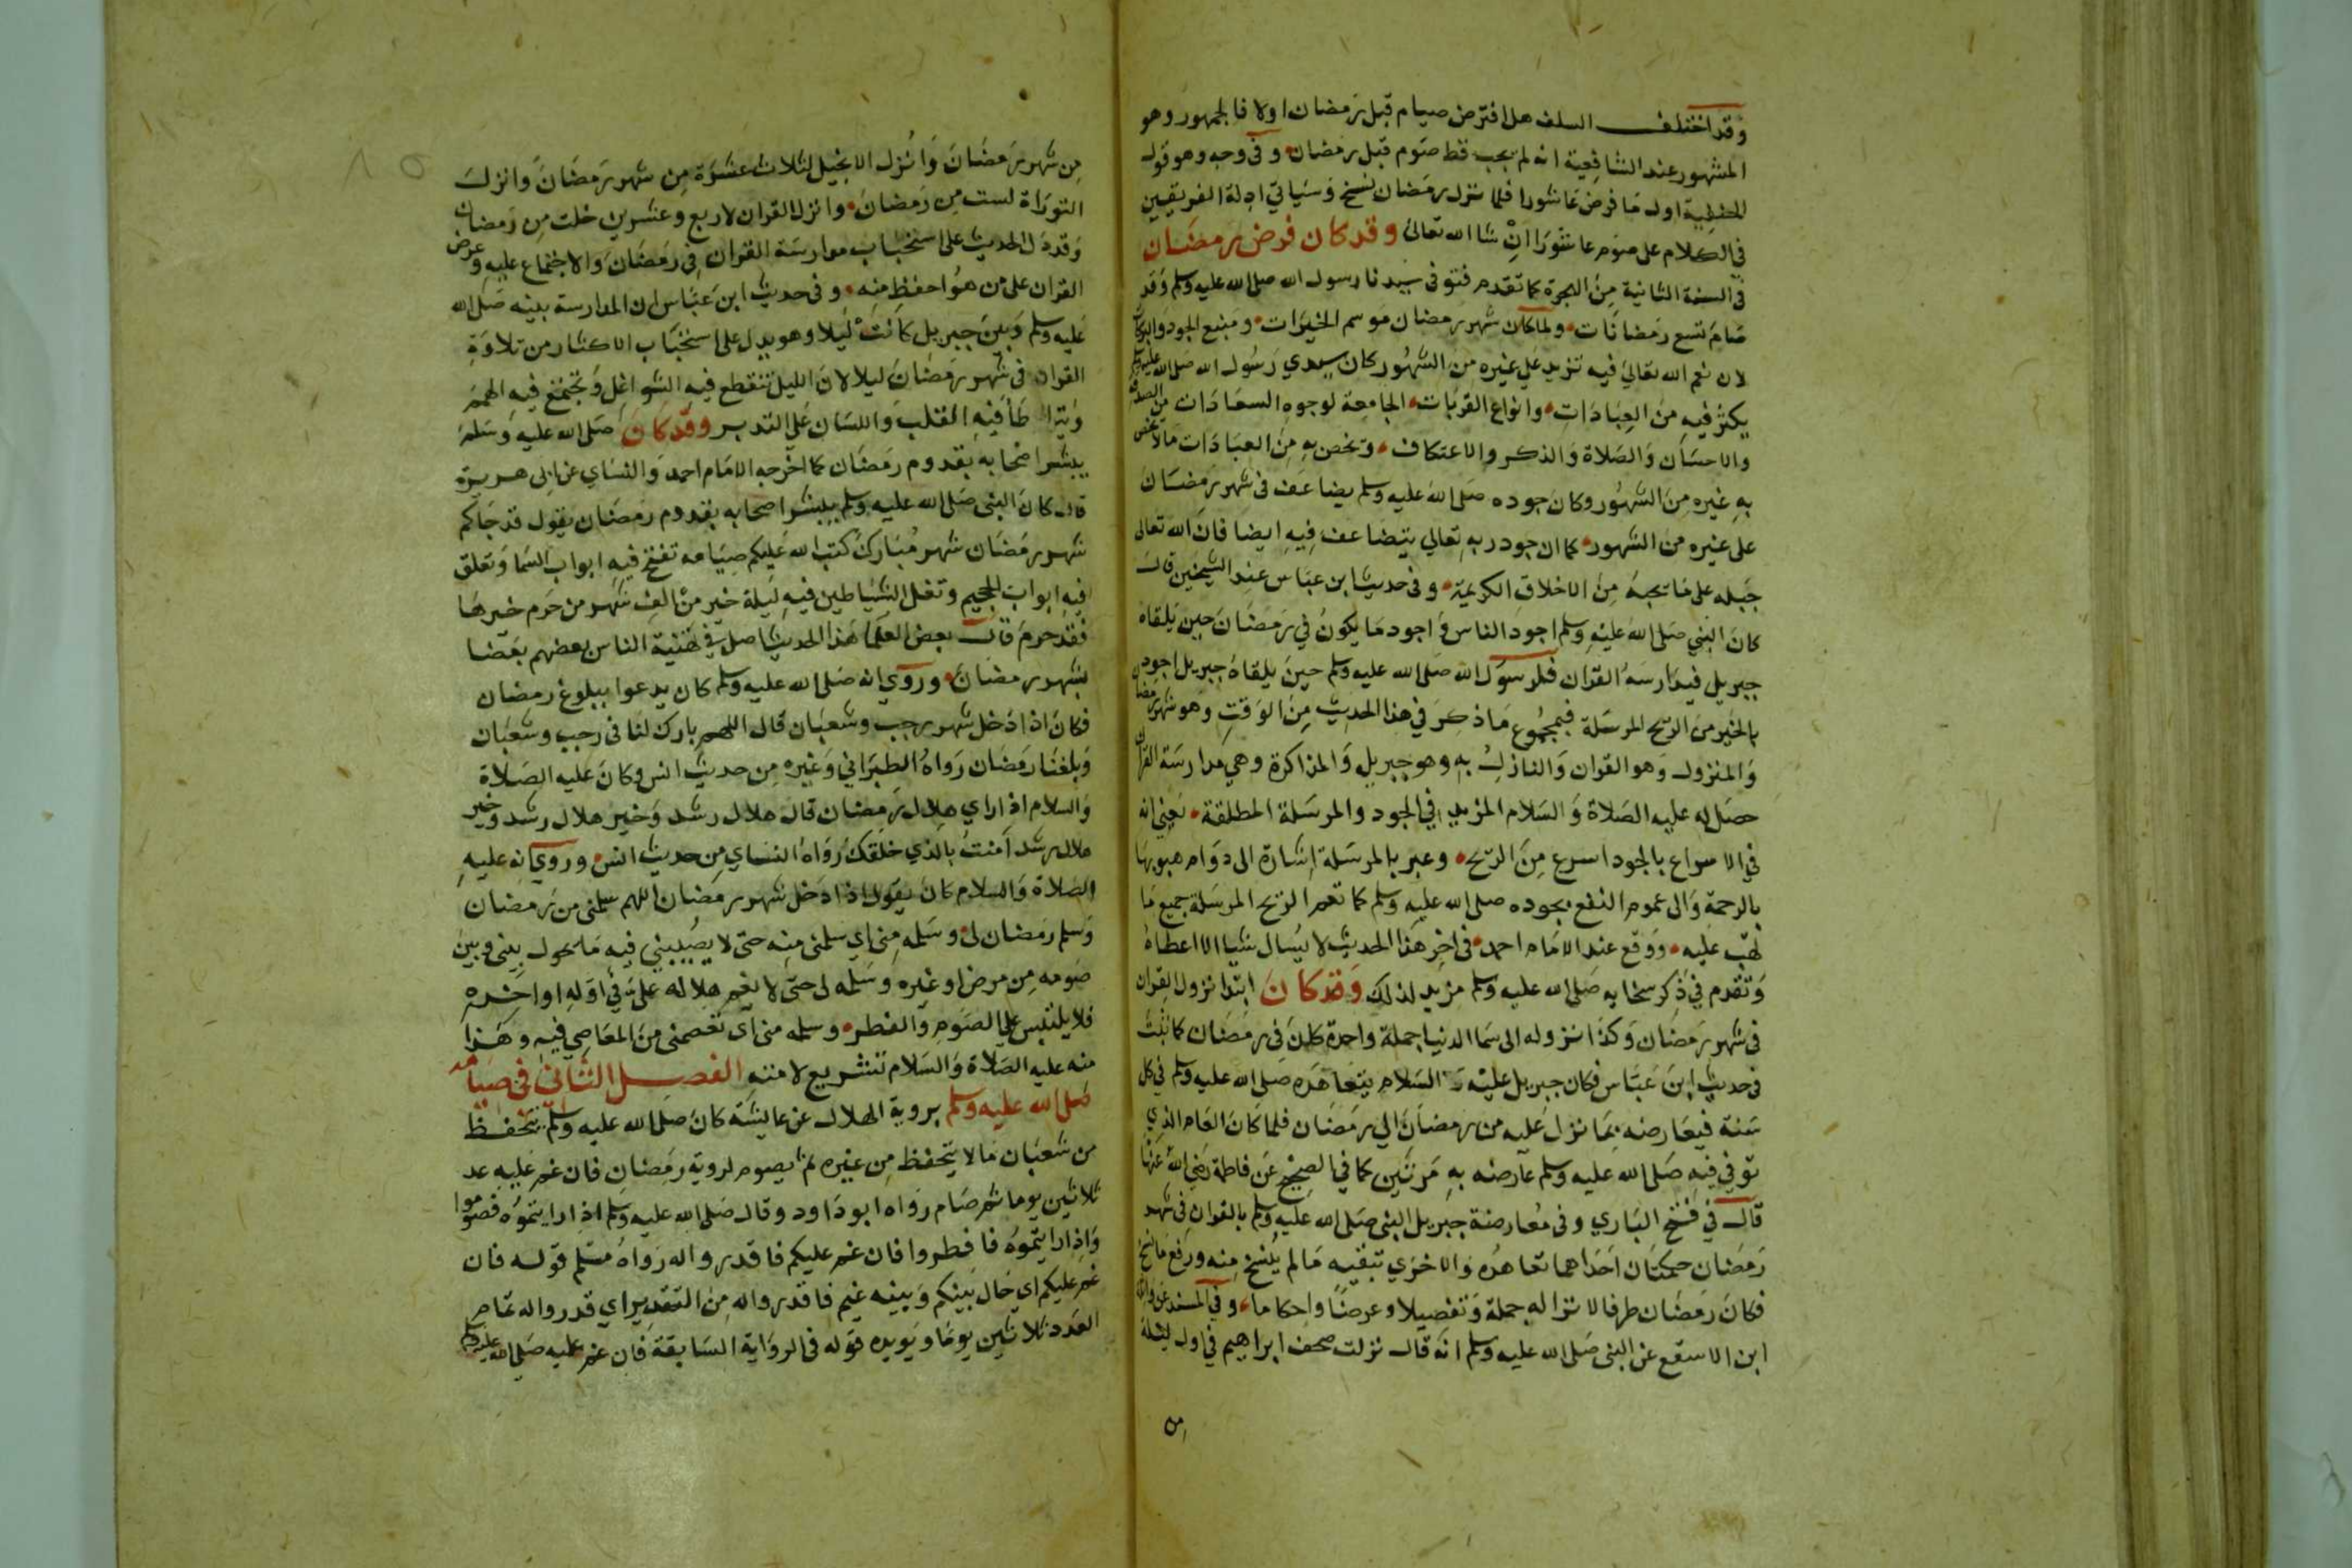 وقد اختلف السلف هل افترض صيام قبل رمضان اولا فالجمهور وهو
المشهور عند الشافعية انه لم يجب قط صوم قبل رمضان وفى وجه وهو قول
الحنفية اول ما فرض عاشورا فلما نزل رمضان نسخ وسياتي ادلة الفريقين
في الكلام على صوم عاشورا ان شا الله تعالى وقد كان فرض رمضان
فى السنة الثانية من الهجرة كما تقدم فتوفى سيدنا رسول الله صلى الله عليه وسلم وقد
صام تسع رمضانات ولما كان شهر رمضان موسم الخيرات ومنبع الجود والبركات
لان نعم الله تعالى فيه تزيد على غيره من الشهور كان سيدي رسول الله صلى الله عليه وسلم
يكثر فيه من العبادات وانواع القربات الجامعة لوجوه السعادات من الصدقة
والاحسان والصلاة والذكر والاعتكاف ويخص به من العبادات مالا يخص
به غيره من الشهور وكان جوده صلى الله عليه وسلم يضاعف فى شهر رمضان
على غيره من الشهور كما ان جود ربه تعالي يتضاعف فيه ايضا فان الله تعالى
جبله على ما يحبه من الاخلاق الكريمة وفى حديث ابن عباس عند الشيخين قال
كان النبي صلى الله عليه وسلم اجود الناس واجود ما يكون في رمضان حين يلقاه
جبريل فيدارسه القران فلرسول الله صلى الله عليه وسلم حين يلقاه جبريل اجود
بالخير من الريح المرسلة فبمجموع ما ذكر في هذا الحديث من الوقت وهو شهر رمضان
والمنزول وهو القران والنازل به وهو جبريل والمذاكرة وهي مدارسة القران
حصل له عليه الصلاة والسلام المزيد في الجود والمرسلة المطلقة يعني انه
في الاسراع بالجود اسرع من الريح وعبر بالمرسلة اشارة الى دوام هبوبها
بالرحمة والى عموم النفع بجوده صلى الله عليه وسلم كما تعم الريح المرسلة جميع ما
تهب عليه ووقع عند الامام احمد فى اخر هذا الحديث لا يسال شيا الا اعطاه
وتقدم في ذكر سخابه صلى الله عليه وسلم مزيد لذلك وقد كان ابتدا نزول القران
فى شهر رمضان وكذا نزوله الى سما الدنيا جملة واحدة كان فى رمضان كما ثبت
فى حديث ابن عباس فكان جبريل عليه السلام يتعاهده صلى الله عليه وسلم في كل
سنة فيعارضه بما نزل عليه من رمضان الى رمضان فلما كان العام الذي
توفي فيه صلى الله عليه وسلم عارضه به مرتين كما في الصحيح عن فاطمة رضي الله عنها
قال في فتح الباري وفى معارضة جبريل النبى صلى الله عليه وسلم بالقران فى شهر
رمضان حكمتان احداهما تعاهده والاخرى تبقيه مالم ينسخ منه ورفع ما نسخ
فكان رمضان ظرفا لانزاله جملة وتفصيلا وعرضا واحكاما وفي المسند عن واثلة
ابن الاسقع عن النبى صلى الله عليه وسلم انه قال نزلت صحف ابراهيم في اول ليلة
من
من شهر رمضان وانزل الانجيل لثلاث عشرة من شهر رمضان وانزلت
التوراة لست من رمضان وانزل القران لاربع وعشرين خلت من رمضان
وقد دل الحديث على استحباب مدارسة القران في رمضان والاجتماع عليه وعرض
القران على من هو احفظ منه وفى حديث ابن عباس ان المدارسة بينه صلى الله
عليه وسلم وبين جبريل كانت ليلا وهو يدل على استحباب الاكثار من تلاوة
القران فى شهر رمضان ليلا لان الليل تنقطع فيه الشواغل وتجتمع فيه الهمم
ويتواطا فيه القلب واللسان على التدبر وقد كان صلى الله عليه وسلم
يبشر اصحابه بقدوم رمضان كما اخرجه الامام احمد والنساي عن ابى هريرة
قال كان النبى صلى الله عليه وسلم يبشر اصحابه بقدوم رمضان يقول قد جاكم
شهر رمضان شهر مبارك كتب الله عليكم صيامه تفتح فيه ابواب السما وتغلق
فيه ابواب الجحيم وتغل الشياطين فيه ليلة خير من الف شهر من حرم خيرها
فقد حرم قال بعض العلما هذا الحديث اصل في تهنية الناس بعضهم بعضا
بشهر رمضان وروي انه صلى الله عليه وسلم كان يدعوا ببلوغ رمضان
فكان اذا دخل شهر رجب وشعبان قال اللهم بارك لنا فى رجب وشعبان
وبلغنا رمضان رواه الطبراني وغيره من حديث انس وكان عليه الصلاة
والسلام اذا راي هلال رمضان قال هلال رشد وخير هلال رشد وخير
هلال رشد امنت بالذي خلقك رواه النساي من حديث انس وروي انه عليه
الصلاة والسلام كان يقول اذا دخل شهر رمضان اللهم سلمنى من رمضان
وسلم رمضان لى وسلمه منى اي سلمنى منه حتى لا يصيبني فيه ما يحول بينى وبين
صومه من مرض او غيره وسلمه لى حتى لا يغم هلاله على في اوله او اخره
فلا يلتبس علي الصوم والفطر وسلمه منى اى تعصمنى من المعاصي فيه وهذا
منه عليه الصلاة والسلام تشريع لامته الفصل الثانى فى صيامه
صلى الله عليه وسلم بروية الهلال عن عايشة كان صلى الله عليه وسلم يتحفظ
من شعبان مالا يتحفظ من غيره ثم يصوم لروية رمضان فان غم عليه عد
ثلاثين يوما ثم صام رواه ابوداود وقال صلى الله عليه وسلم اذا رايتموه فصوموا
واذا رايتموه فافطروا فان غم عليكم فاقدروا له رواه مسلم قوله فان
غم عليكم اي حال بينكم وبينه غيم فاقدروا له من التقدير اي قدروا له تمام
العدد ثلاثين يوما ويويده قوله فى الرواية السابقة فان غم عليه صلى الله عليه وسلم